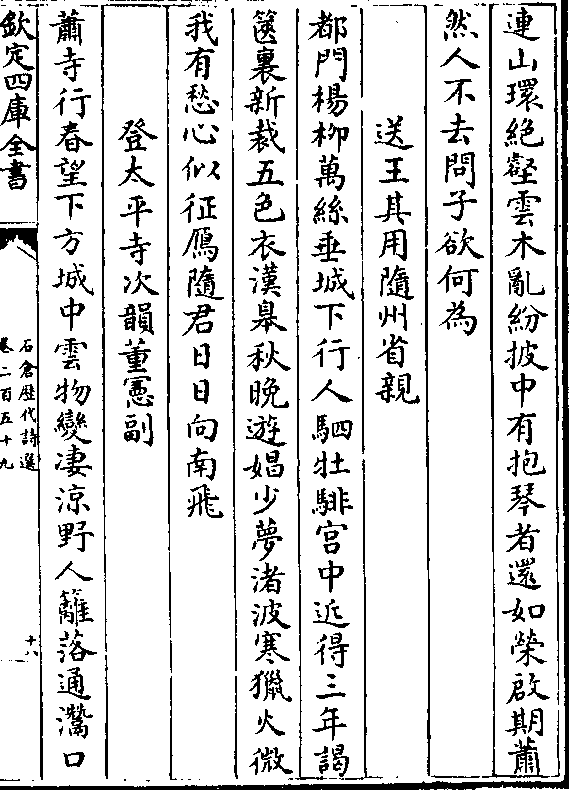 連山環絶壑雲木亂紛披中有抱琴者還如榮啟期蕭
然人不去問子欲何為
送王其用隨州省親
都門楊柳萬絲垂城下行人駟牡騑宫中近得三年謁
篋裏新裁五色衣漢臯秋晚遊娼少夢渚波寒獵火微
我有愁心似征鴈隨君日日向南飛
登太平寺次韻董憲副
蕭寺行春望下方城中雲物變凄涼野人籬落通灊口
欽定四庫全書
石倉歴代詩選
卷二百五十九
十八